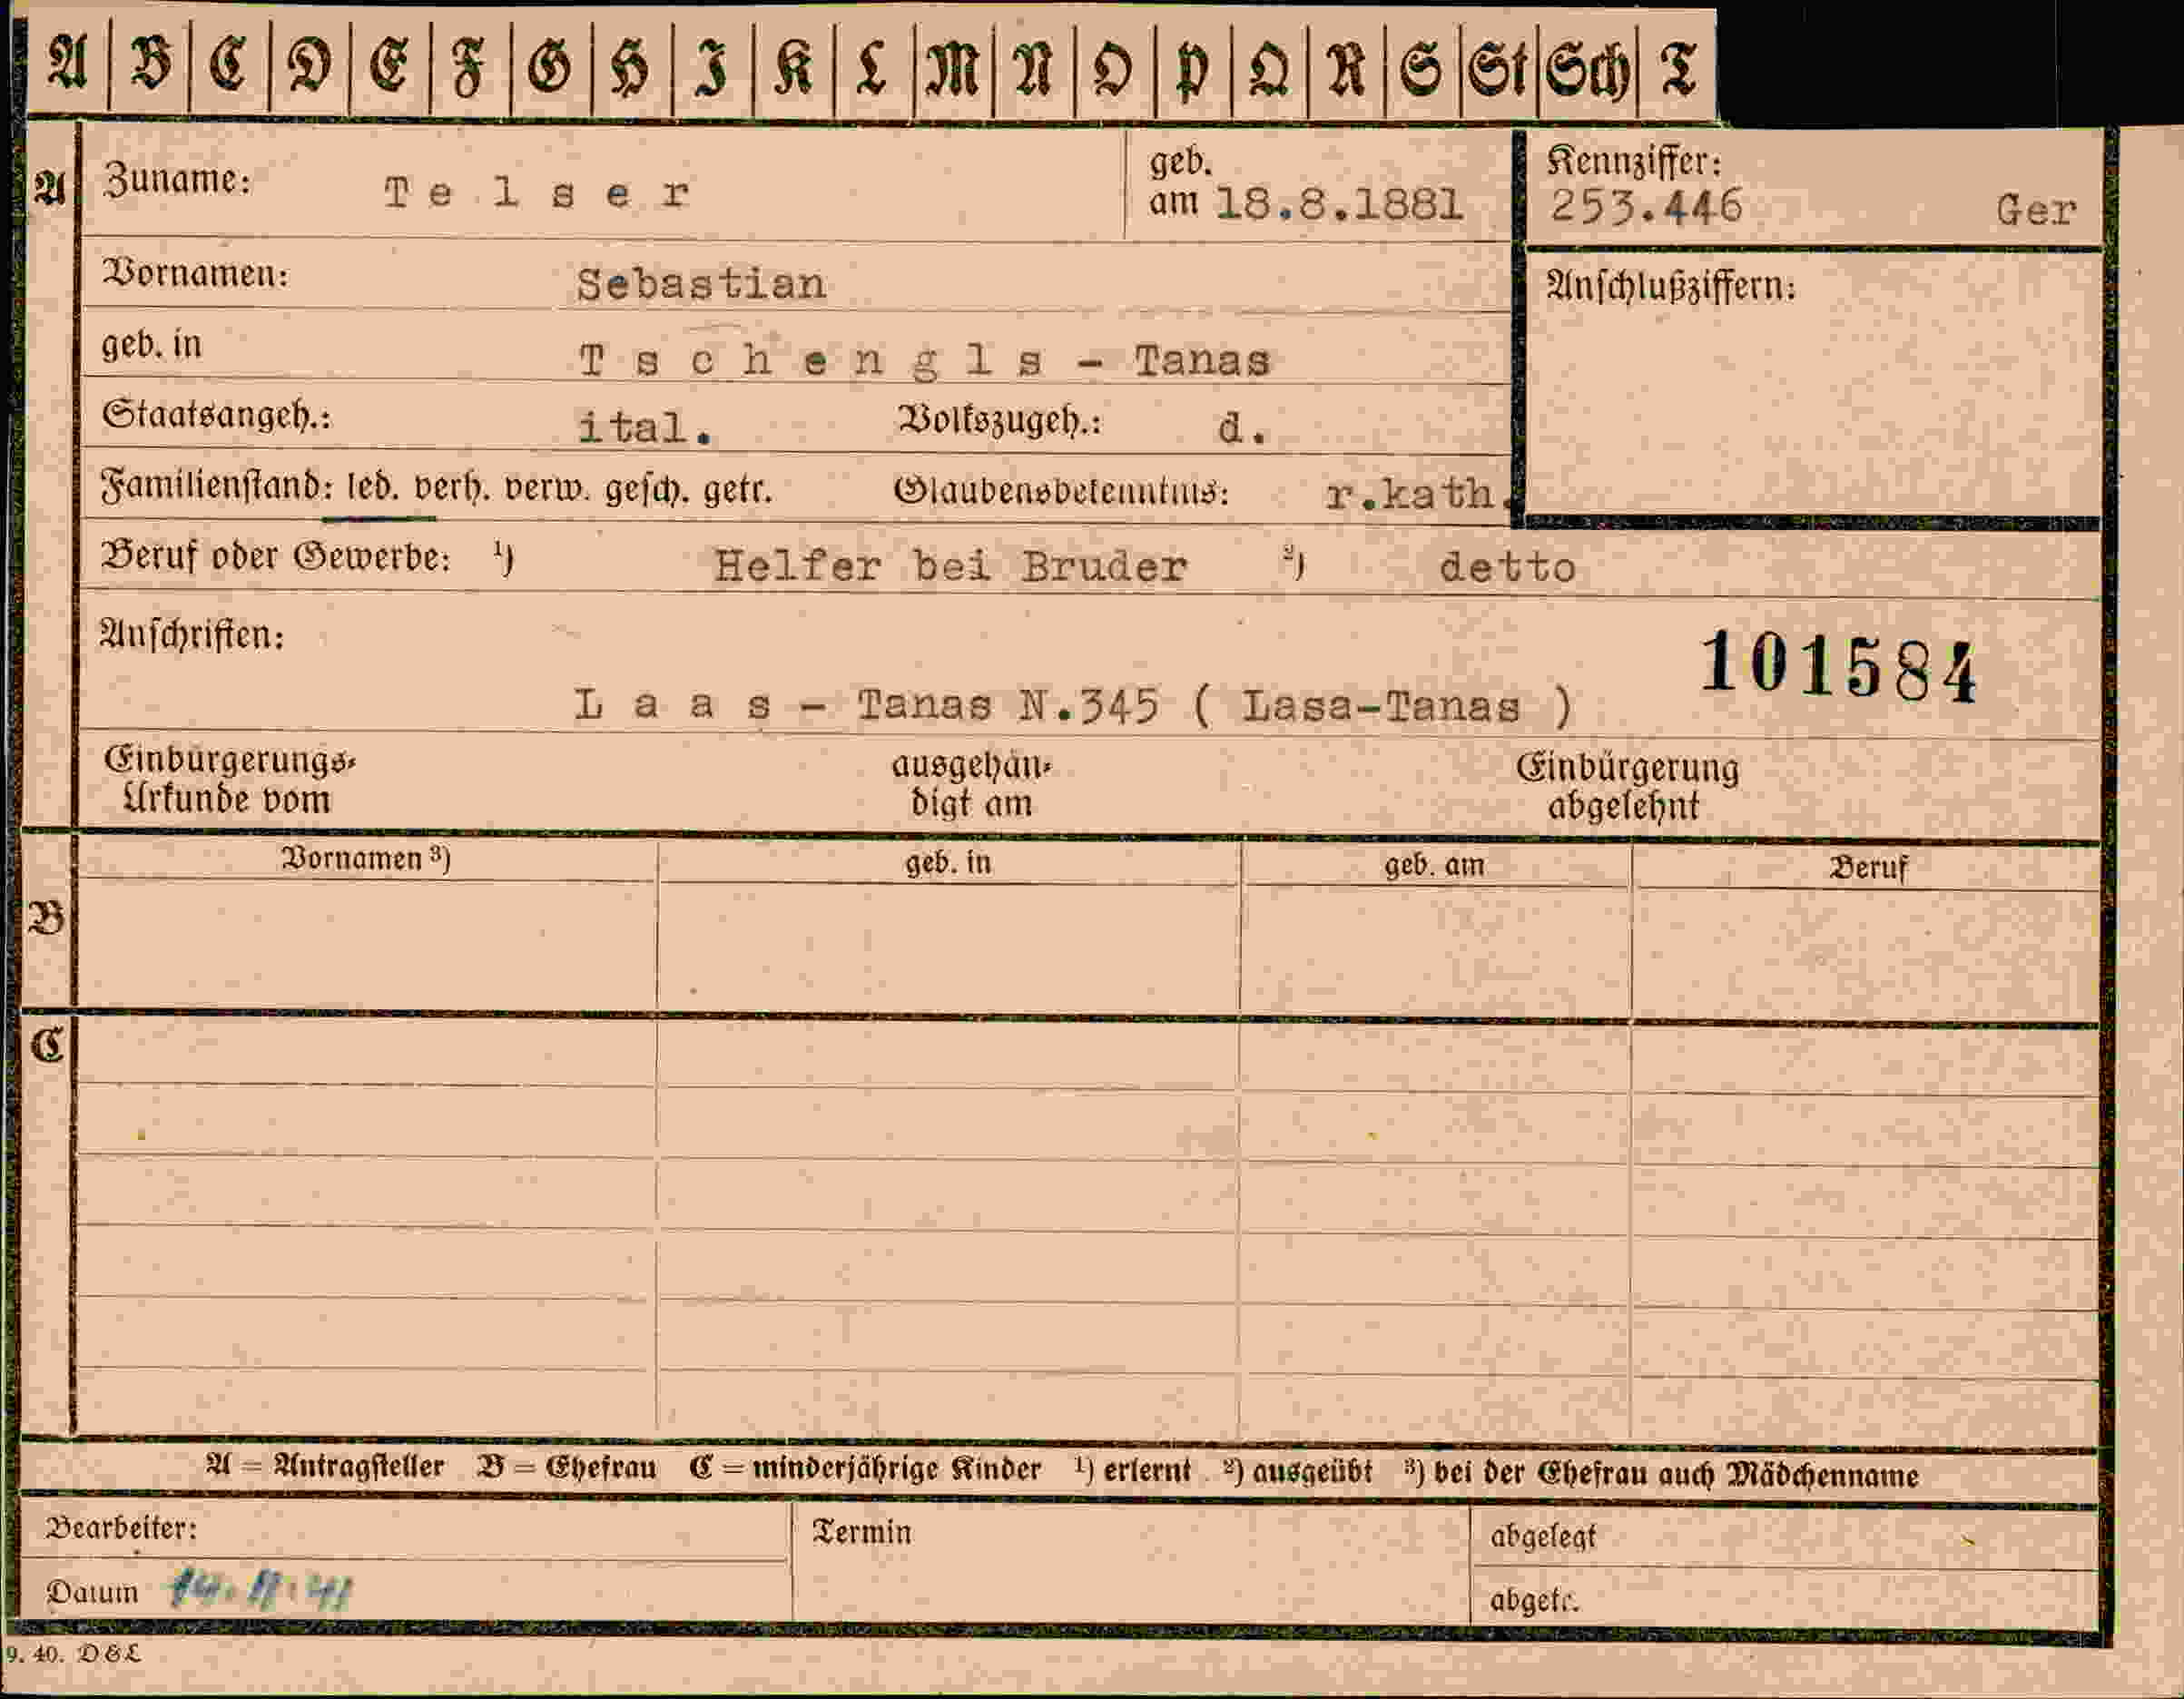 A B C D E F G H I K L M N O P Q R S St Sch T
A Zuname: Telser geb. am 18.8.1881 Kennziffer: 253.446 Ger
Vornamen: Sebastian Anschlußziffern:
geb. in Tschengls - Tanas
Staatsangeh.: ital. Volkszugeh.: d.
Familienstand: led. verh. verw. gesch. getr. Glaubensbekenntnis: r.kath.
Beruf oder Gewerbe: 1) Helfer bei Bruder 2) detto
Anschriften: 101584
Laas - Tanas N.345 ( Lasa-Tanas )
Einbürgerungs- ausgehän- Einbürgerung
Urkunde vom digt am abgelehnt
Vornamen 3) geb. in geb. am Beruf
B
C
A = Antragsteller B = Ehefrau C = minderjährige Kinder 1) erlernt 2) ausgeübt 3) bei der Ehefrau auch Mädchenname
Bearbeiter: Termin abgelegt
Datum abgetr.
9. 40. D&L